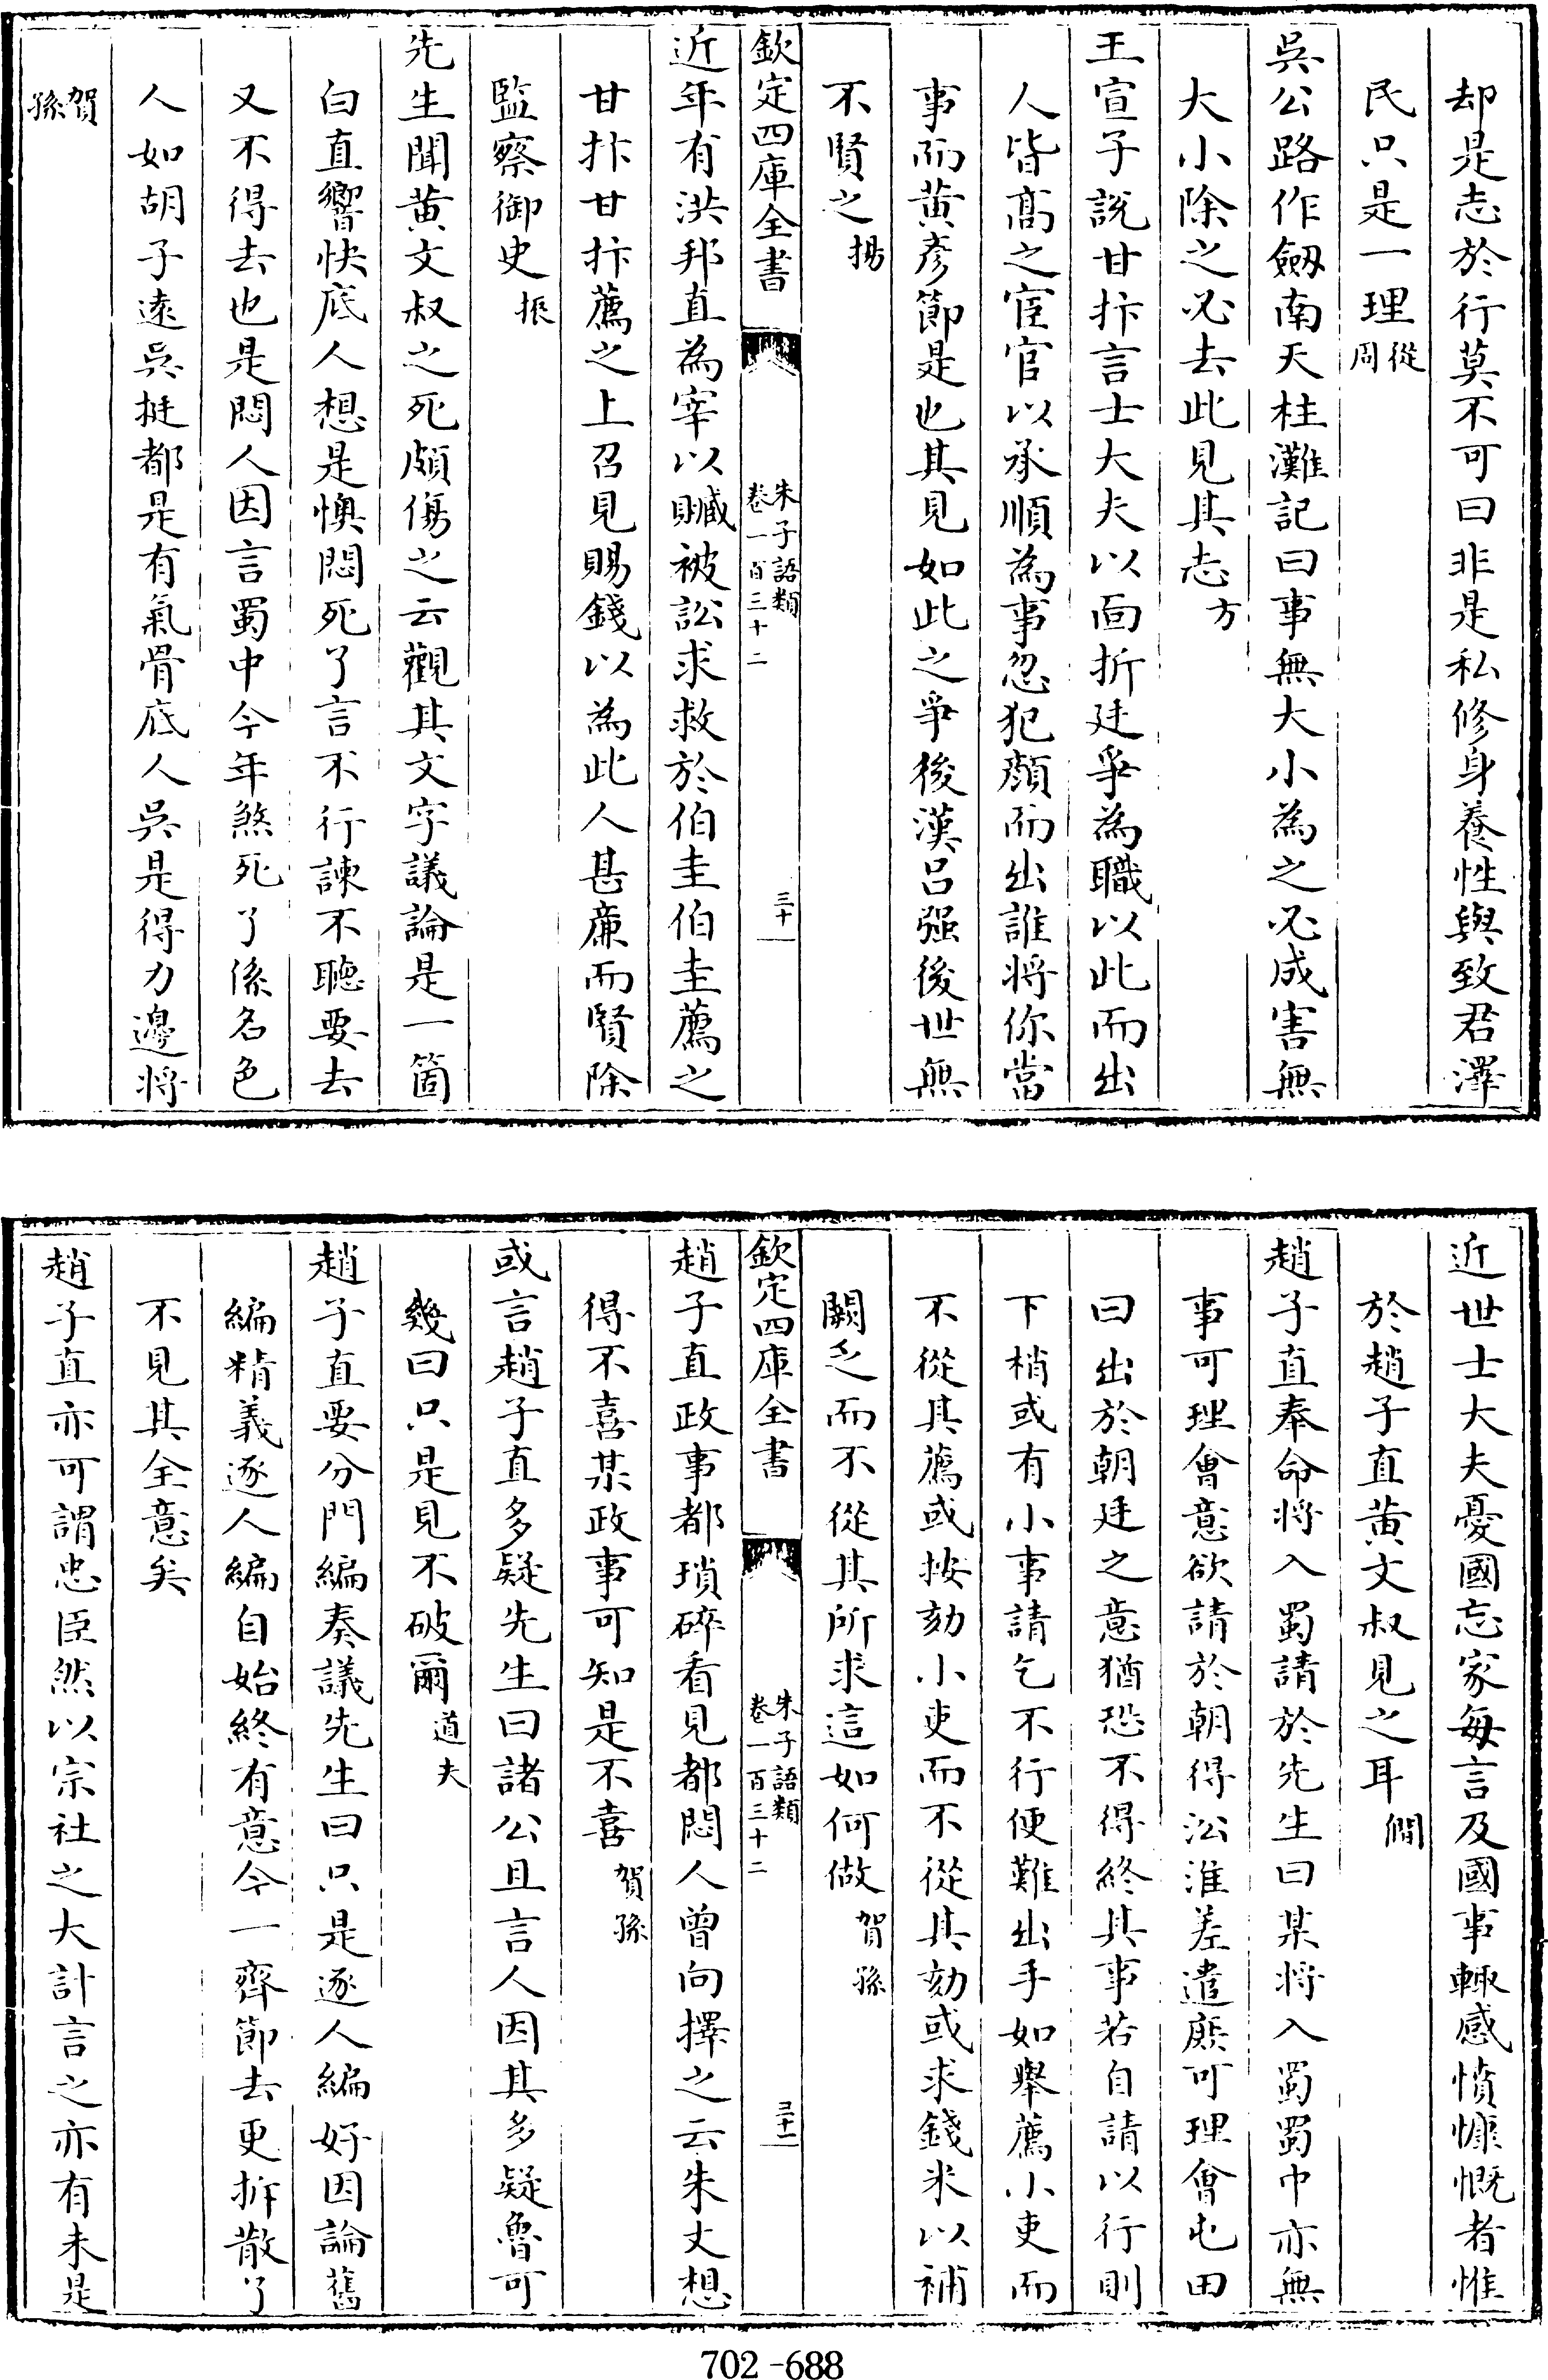 却是志於行莫不可曰非是私修身養性與致君澤
民只是一理從周
吳公路作劒南天柱灘記曰事無大小為之必成害無
大小除之必去此見其志方
王宣子説甘抃言士大夫以面折廷爭為職以此而出
人皆髙之宦官以承順為事忽犯顔而出誰將你當
事而黄彦節是也其見如此之爭後漢吕强後世無
不賢之揚
欽定四庫全書
朱子語類
卷一百三十二
三十
近年有洪邦直為宰以贓被訟求救於伯圭伯圭薦之
甘抃甘抃薦之上召見賜錢以為此人甚廉而賢除
監察御史振
先生聞黄文叔之死頗傷之云觀其文字議論是一箇
白直響快底人想是懊悶死了言不行諫不聽要去
又不得去也是悶人因言蜀中今年煞死了係名色
人如胡子逺吳挺都是有氣骨底人吳是得力邊將
賀孫
近世士大夫憂國忘家每言及國事輒感憤慷慨者惟
於趙子直黄文叔見之耳僩
趙子直奉命將入蜀請於先生曰某將入蜀蜀中亦無
事可理會意欲請於朝得沿淮差遣庶可理會屯田
曰出於朝廷之意猶恐不得終其事若自請以行則
下梢或有小事請乞不行便難出手如舉薦小吏而
不從其薦或按劾小吏而不從其劾或求錢米以補
闕乏而不從其所求這如何做賀孫
欽定四庫全書
朱子語類
卷一百三十二
三十一
趙子直政事都瑣碎看見都悶人曾向擇之云朱丈想
得不喜某政事可知是不喜賀孫
或言趙子直多疑先生曰諸公且言人因其多疑魯可
幾曰只是見不破爾道夫
趙子直要分門編奏議先生曰只是逐人編好因論舊
編精義逐人編自始終有意今一齊節去更拆散了
不見其全意矣
趙子直亦可謂忠臣然以宗社之大計言之亦有未是
702-688